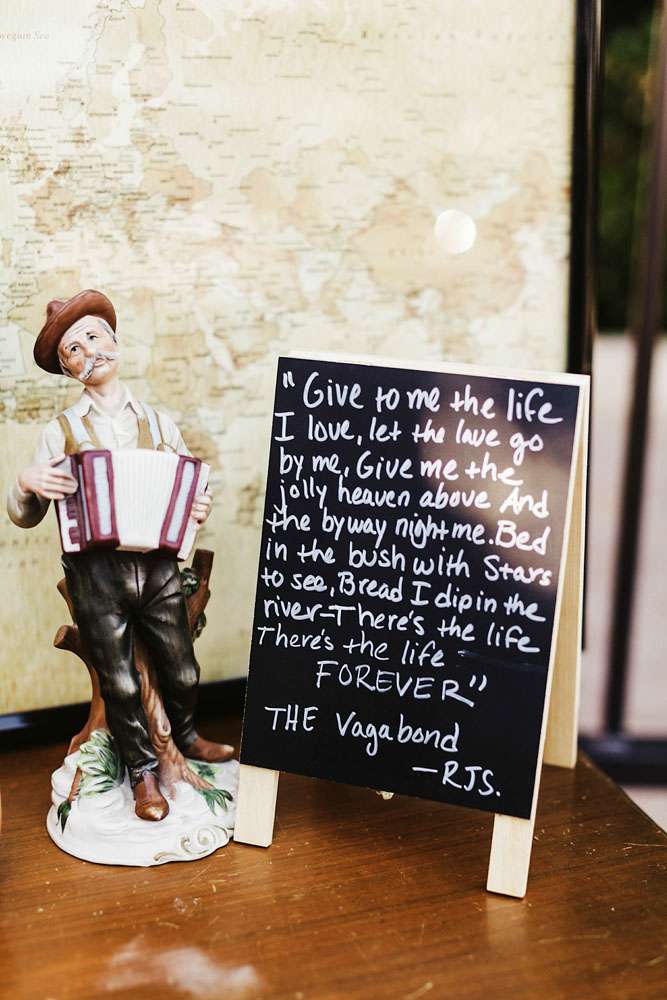 wegian Sea
"Give to me the life
I love, let the lave go
by me, Give me the
jolly heaven above And
the byway nightme. Bed
in the bush with Stars
to see, Bread I dip in the
river-There's the life
There's the life
FOREVER"
THE Vagabond
—RJS.